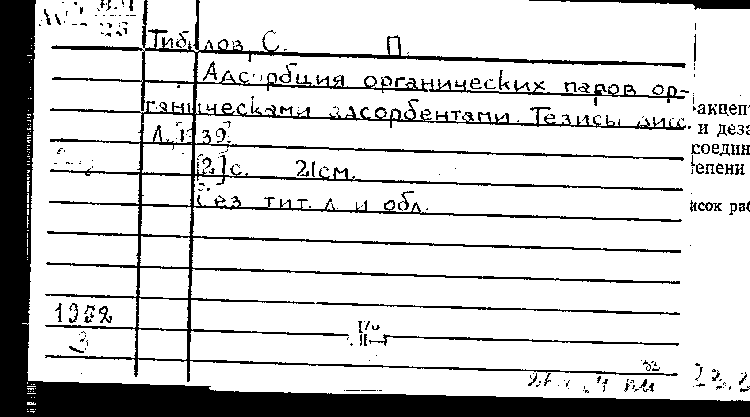 Тибилов, С. П.
Адсорбция органических паров ор-
ганическами адсорбентами. Тезисы дисс.
Л., [1939]
[2] с. 21см.
Без тит. л и обл.
1952
3
акцеп
и деза
соедин
тепени
исок раб